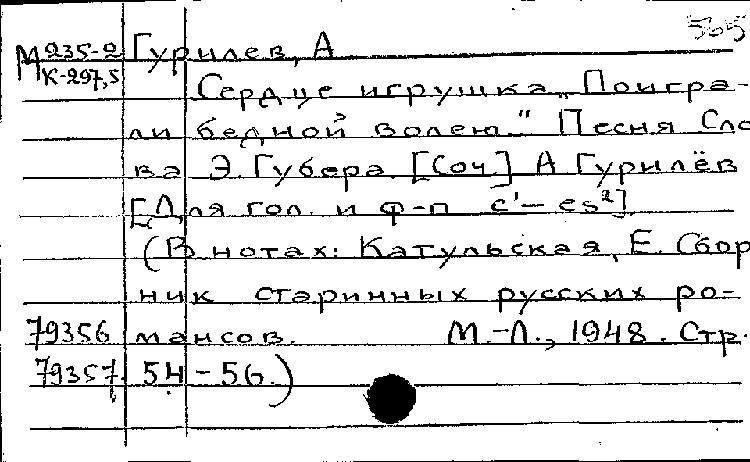 565
М 235-2 Гурилев, А
К-297,5
Сердце игрушка „Поигра-
ли бедной волею." Песня Сло
ва Э. Губера. [Соч.] А Гурилёв
[Для гол. и ф-п c¹– es²].
(В нотах: Катульская, Е. Сбор
ник старинных русских ро-
79356 мансов. М.-Л., 1948. Стр.
79357. 54-56.)